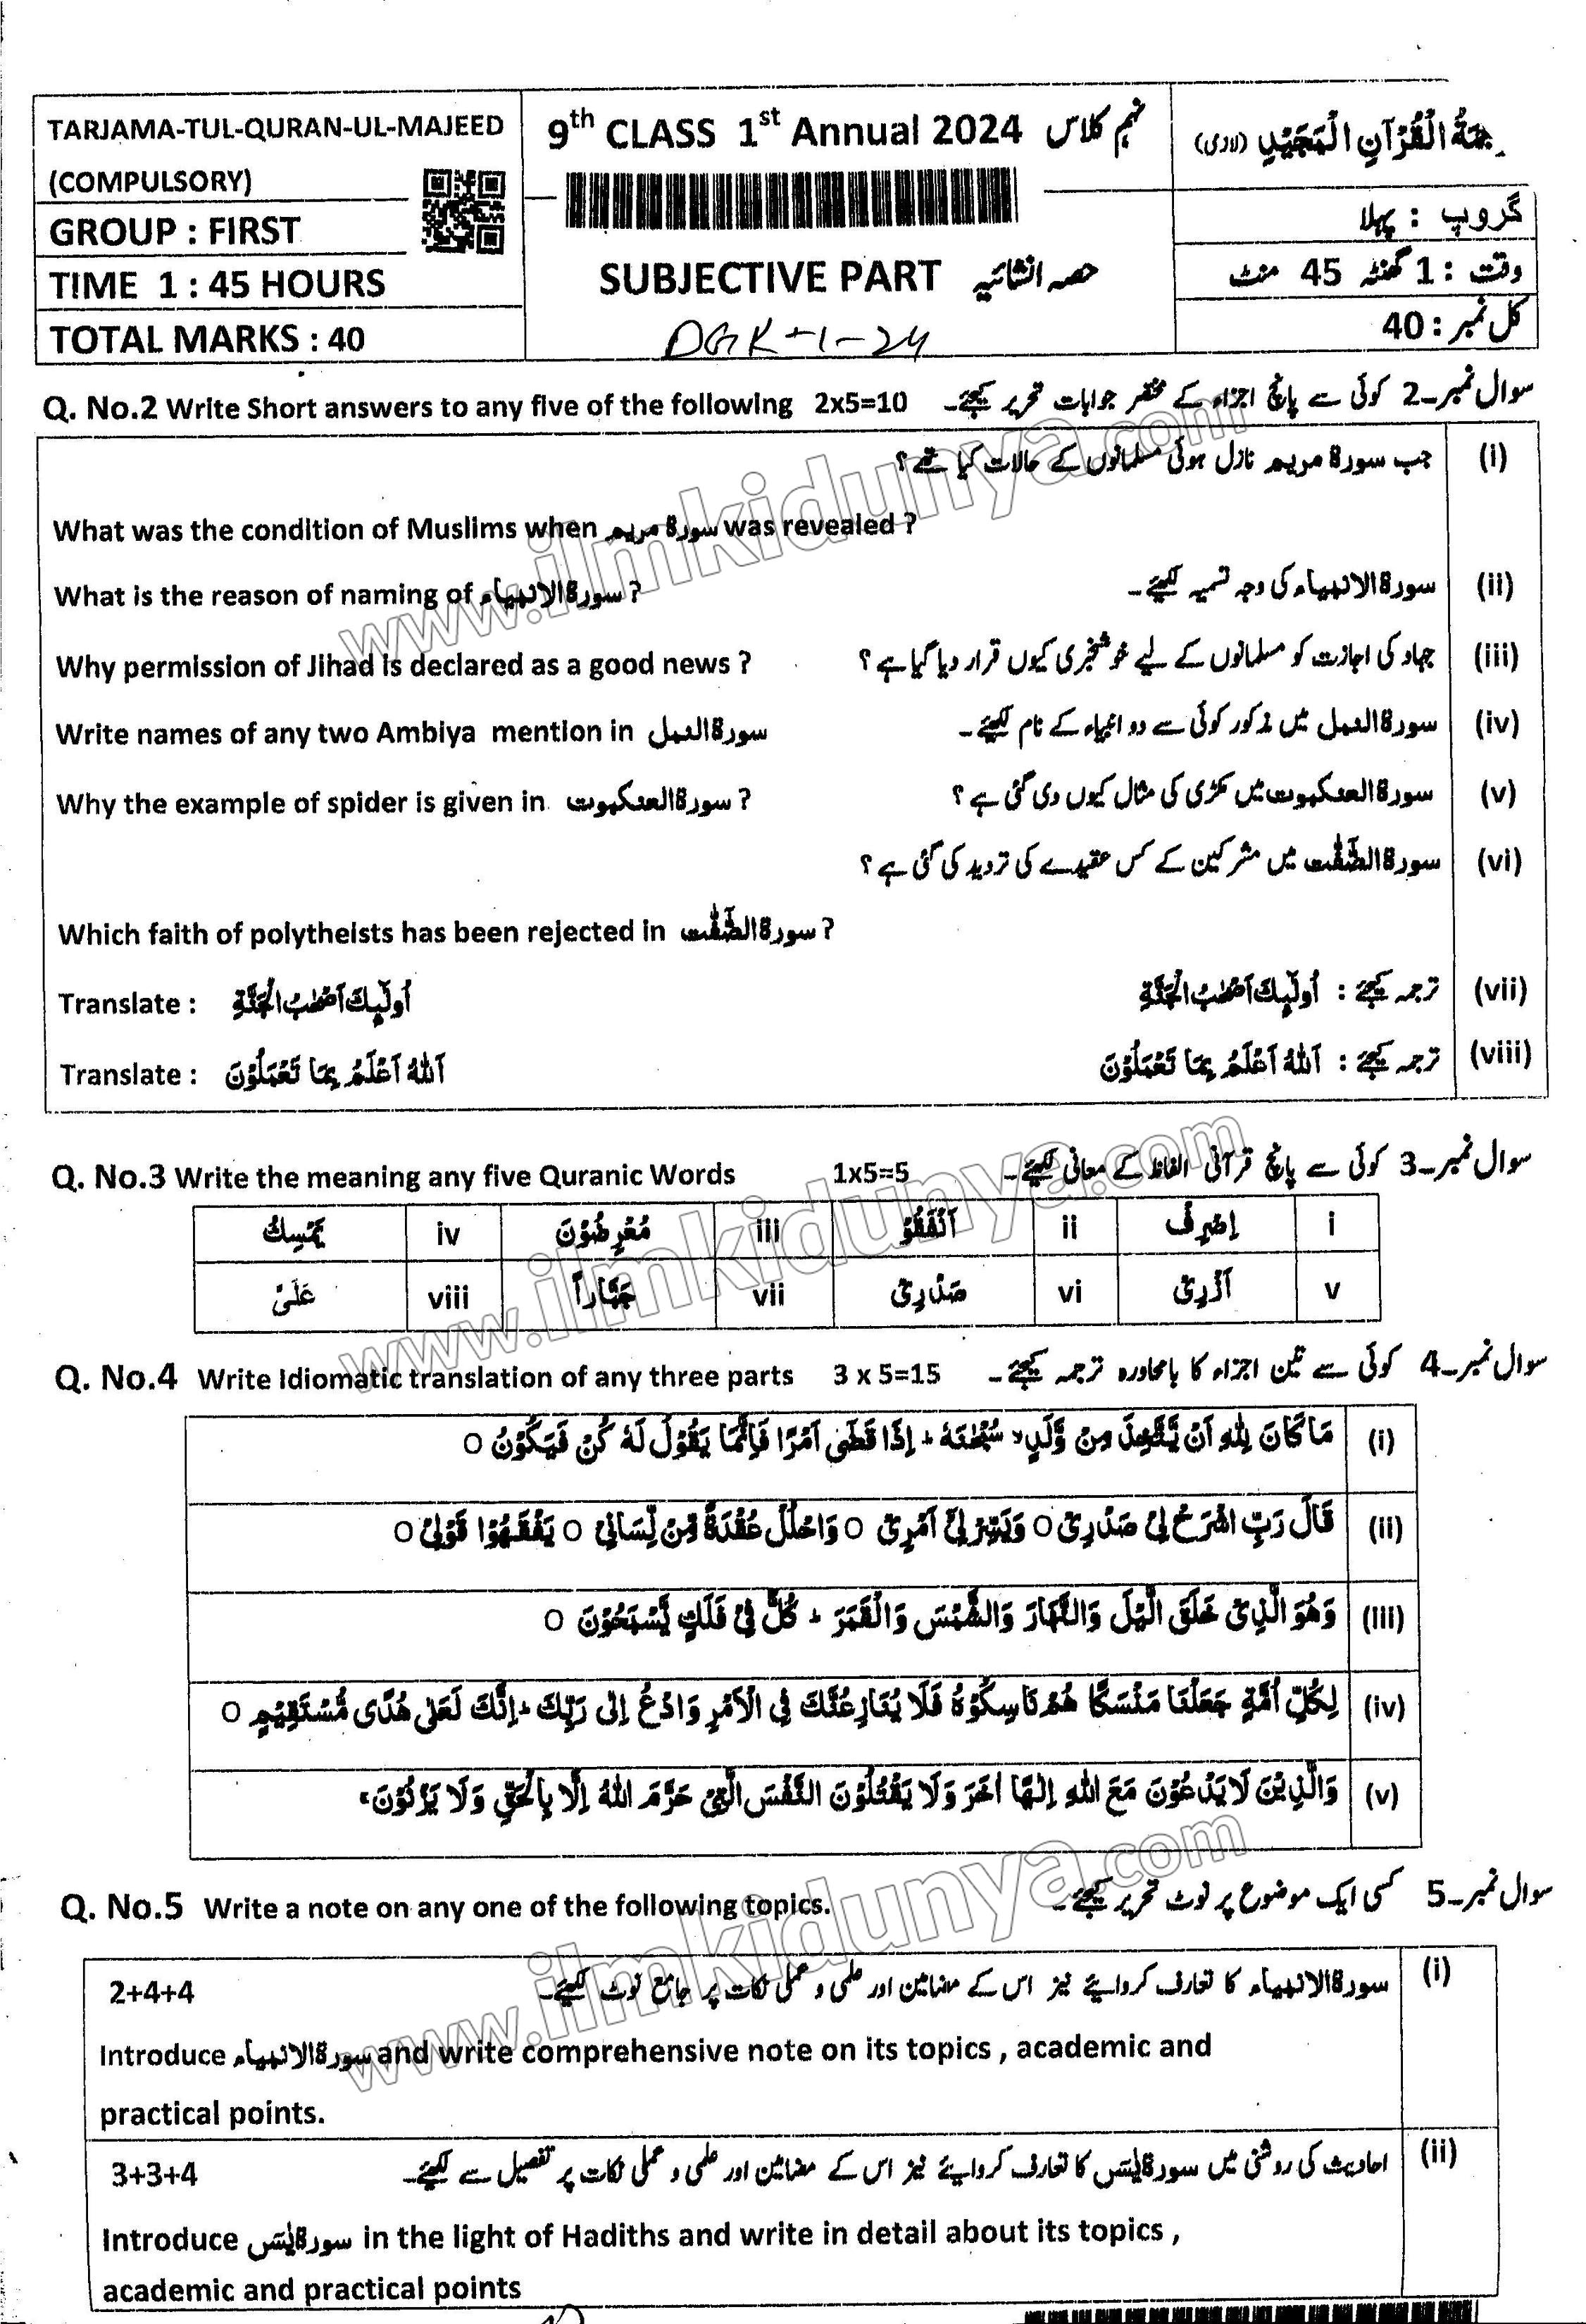 TARJAMA-TUL-QURAN-UL-MAJEED
(COMPULSORY)
GROUP : FIRST
TIME 1 : 45 HOURS
TOTAL MARKS : 40
9th CLASS 1st Annual 2024 نہم کلاس
SUBJECTIVE PART حصہ انشائیہ
DGK-1-24
الْقُرْآنِ الْمَجِيْدِ (لازمی)
گروپ : پہلا
وقت : 1 گھنٹہ 45 منٹ
کل نمبر : 40
Q. No.2 Write Short answers to any five of the following 2x5=10 سوال نمبر۔2 کوئی سے پانچ اجزاء کے مختصر جوابات تحریر کیجئے۔
(i) جب سورۃ مریم نازل ہوئی مسلمانوں کے حالات کیا تھے؟
What was the condition of Muslims when سورۃ مریم was revealed ?
What is the reason of naming of سورۃ الانبیاء ? سورۃ الانبیاء کی وجہ تسمیہ لکھیے۔ (ii)
Why permission of Jihad is declared as a good news ? جہاد کی اجازت کو مسلمانوں کے لیے خوشخبری کیوں قرار دیا گیا ہے؟ (iii)
Write names of any two Ambiya mention in سورۃ النمل سورۃ النمل میں مذکور کوئی سے دو انبیاء کے نام لکھیے۔ (iv)
Why the example of spider is given in سورۃ العنکبوت ? سورۃ العنکبوت میں مکڑی کی مثال کیوں دی گئی ہے؟ (v)
(vi) سورۃ الصّٰٓفّٰت میں مشرکین کے کس عقیدے کی تردید کی گئی ہے؟
Which faith of polytheists has been rejected in سورۃ الصّٰٓفّٰت ?
Translate : اُولٰٓئِكَ اَصْحٰبُ الْجَنَّةِ ترجمہ کیجئے : اُولٰٓئِكَ اَصْحٰبُ الْجَنَّةِ (vii)
Translate : اَللّٰهُ اَعْلَمُ بِمَا تَعْمَلُوْنَ ترجمہ کیجئے : اَللّٰهُ اَعْلَمُ بِمَا تَعْمَلُوْنَ (viii)
Q. No.3 Write the meaning any five Quranic Words 1x5=5 سوال نمبر۔3 کوئی سے پانچ قرآنی الفاظ کے معانی لکھیے۔
i اِصْرِفْ ii اَنْفَقُوْ iii مُعْرِضُوْنَ iv يُمْسِكُ
v اَزْرِىْ vi صَدْرِىْ vii جَبَّاراً viii عَلَىَّ
Q. No.4 Write Idiomatic translation of any three parts 3 x 5=15 سوال نمبر۔4 کوئی سے تین اجزاء کا بامحاورہ ترجمہ کیجئے۔
(i) مَا كَانَ لِلّٰهِ اَنْ يَّتَّخِذَ مِنْ وَّلَدٍ ۙ سُبْحٰنَهٗ ؕ اِذَا قَضٰٓى اَمْرًا فَاِنَّمَا يَقُوْلُ لَهٗ كُنْ فَيَكُوْنُ ○
(ii) قَالَ رَبِّ اشْرَحْ لِىْ صَدْرِىْ ○ وَيَسِّرْ لِىْٓ اَمْرِىْ ○ وَاحْلُلْ عُقْدَةً مِّنْ لِّسَانِىْ ○ يَفْقَهُوْا قَوْلِىْ ○
(iii) وَهُوَ الَّذِىْ خَلَقَ الَّيْلَ وَالنَّهَارَ وَالشَّمْسَ وَالْقَمَرَ ؕ كُلٌّ فِىْ فَلَكٍ يَّسْبَحُوْنَ ○
(iv) لِكُلِّ اُمَّةٍ جَعَلْنَا مَنْسَكًا هُمْ نَاسِكُوْهُ فَلَا يُنَازِعُنَّكَ فِى الْاَمْرِ وَادْعُ اِلٰى رَبِّكَ ؕ اِنَّكَ لَعَلٰى هُدًى مُّسْتَقِيْمٍ ○
(v) وَالَّذِيْنَ لَا يَدْعُوْنَ مَعَ اللّٰهِ اِلٰهًا اٰخَرَ وَلَا يَقْتُلُوْنَ النَّفْسَ الَّتِىْ حَرَّمَ اللّٰهُ اِلَّا بِالْحَقِّ وَلَا يَزْنُوْنَ ۚ
Q. No.5 Write a note on any one of the following topics. سوال نمبر۔5 کسی ایک موضوع پر نوٹ تحریر کیجئے۔
2+4+4 سورۃ الانبیاء کا تعارف کروایئے نیز اس کے مضامین اور علمی و عملی نکات پر جامع نوٹ لکھیے۔ (i)
Introduce سورۃ الانبیاء and write comprehensive note on its topics , academic and
practical points.
3+3+4 احادیث کی روشنی میں سورۃ یٰسٓ کا تعارف کروایئے نیز اس کے مضامین اور علمی و عملی نکات پر تفصیل سے لکھیے۔ (ii)
Introduce سورۃ یٰسٓ in the light of Hadiths and write in detail about its topics ,
academic and practical points
www.ilmkidunya.com
www.ilmkidunya.com
www.ilmkidunya.com